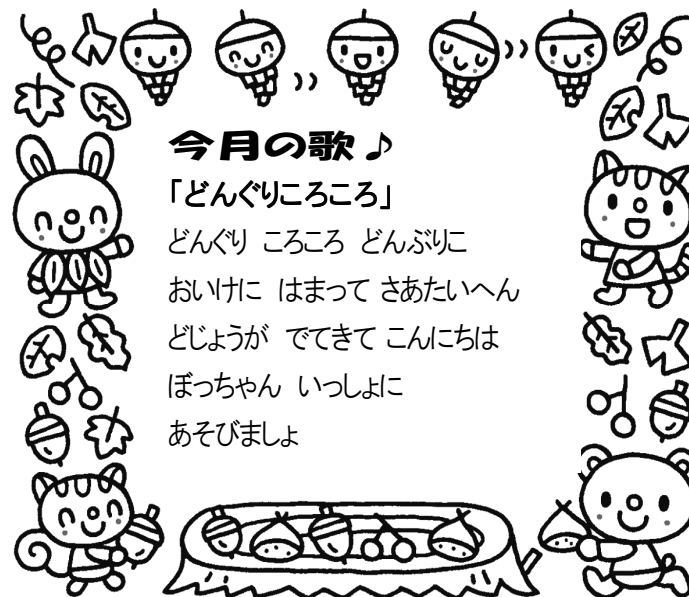 今月の歌♪
「どんぐりころころ」
どんぐり ころころ どんぶりこ
おいけに はまって さあたいへん
どじょうが でてきて こんにちは
ぼっちゃん いっしょに
あそびましょ